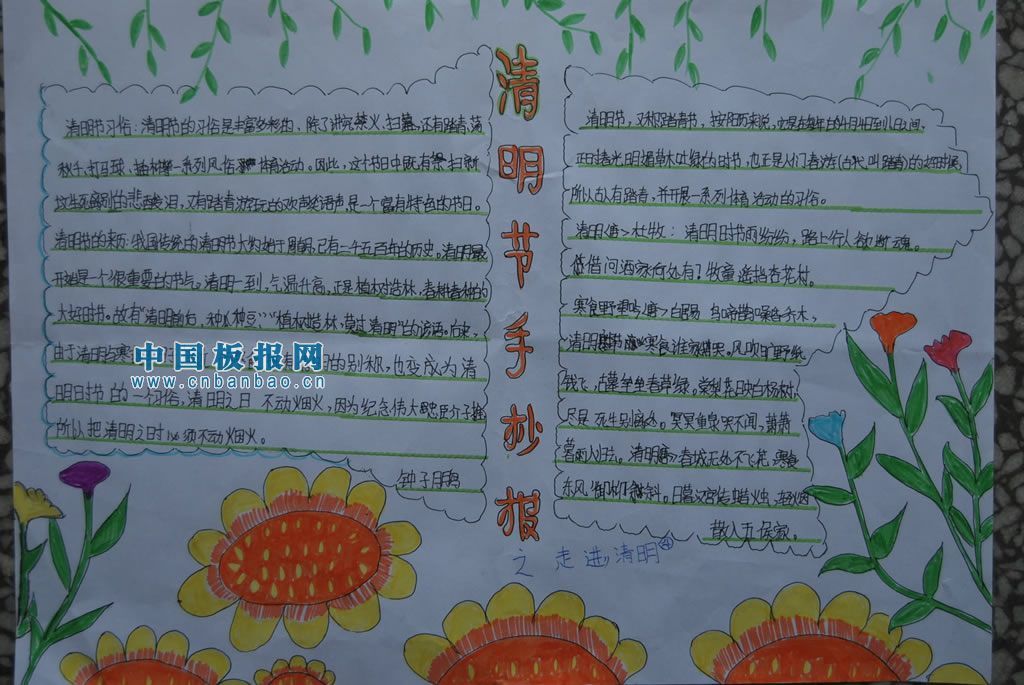 清明节手抄报
之走进清明
清明节习俗：清明节的习俗是丰富多彩的，除了讲究禁火、扫墓，还有踏青、荡
秋千、打马球、插柳等一系列风俗体育活动。因此，这个节日中既有祭扫新
坟生死离别的悲酸泪，又有踏青游玩的欢声笑语声，是一个富有特色的节日。
清明节的来历：我国传统的清明节大约始于周朝，已有二千五百年的历史。清明最
开始是一个很重要的节气，清明一到，气温升高，正是植树造林，春耕春种的
大好时节。故有"清明前后，种瓜种豆"、"植树造林，莫过清明"的农谚。后来，
由于清明与寒
的别称，也变成为清
明时节的一个习俗，清明之日不动烟火，因为纪念伟大的忠臣介子推
所以把清明之时必须不动烟火。
钟子月鸣
清明节，又称踏青节，按阳历来说，它是在每年的4月4日到6日之间，
正时春光明媚草木吐绿的时节，也正是人们春游（古代叫踏青）的好时候，
所以古有踏青，并开展一系列体育活动的习俗。
清明<唐>杜牧：清明时节雨纷纷，路上行人欲断魂。
借问酒家何处有？牧童遥指杏花村。
寒食野望吟<唐>白居易 乌啼鹊噪昏乔木，
清明寒食谁家哭。风吹旷野纸
钱飞，古墓垒垒春草绿。棠梨花映白杨树，
尽是死生别离处。冥冥重泉哭不闻，萧萧
暮雨人归去。清明 唐>春城无处不飞花，寒食
东风御柳斜。日暮汉宫传蜡烛，轻烟
散入五侯家。
中国板报网
www.cnbanbao.cn